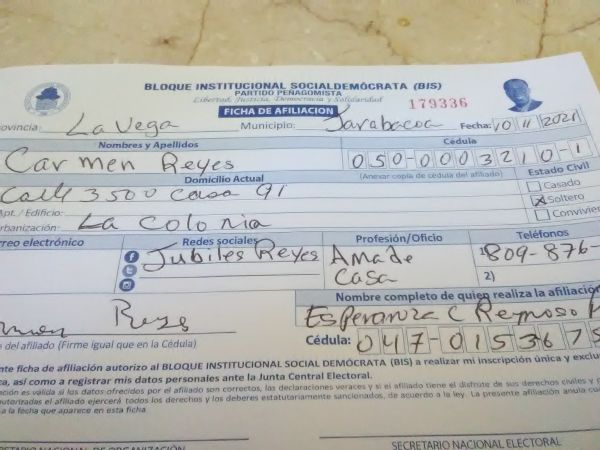 BLOQUE INSTITUCIONAL SOCIALDEMÓCRATA (BIS)
PARTIDO PEÑAGOMISTA
Libertad, Justicia, Democracia y Solidaridad
FICHA DE AFILIACION 179336
ovincia: La Vega Municipio: Jarabacoa Fecha: 10 11 2021
Nombres y Apellidos Cédula
Carmen Reyes 050-0003210-1
Domicilio Actual (Anexar copia de cédula del afiliado) Estado Civil
Calle 3500 casa 91 Casado
Apt. / Edificio: Soltero
rbanización: La Colonia Convivien
rreo electrónico Redes sociales Profesión/Oficio Teléfonos
Jubiles Reyes Ama de casa 1) 809-876-
2)
Nombre completo de quien realiza la afiliación
Reyes Esperanza C Reynoso
Cédula: 047-0153675
a del afiliado (Firme igual que en la Cédula)
nte ficha de afiliación autorizo al BLOQUE INSTITUCIONAL SOCIAL DEMÓCRATA (BIS) a realizar mi inscripción única y exclu
ca, así como a registrar mis datos personales ante la Junta Central Electoral.
ación es valida si los datos ofrecidos por el afiliado son correctos, las declaraciones veraces y si el afiliado tiene el disfrute de sus derechos civiles y p
autorizadas el afiliado ejercerá todos los derechos y los deberes estatutariamente sancionados, de acuerdo a la ley. La presente afiliación anula cu
a la fecha que aparece en esta ficha.
CRETARIO NACIONAL DE ORGANIZACIÓN SECRETARIO NACIONAL ELECTORAL